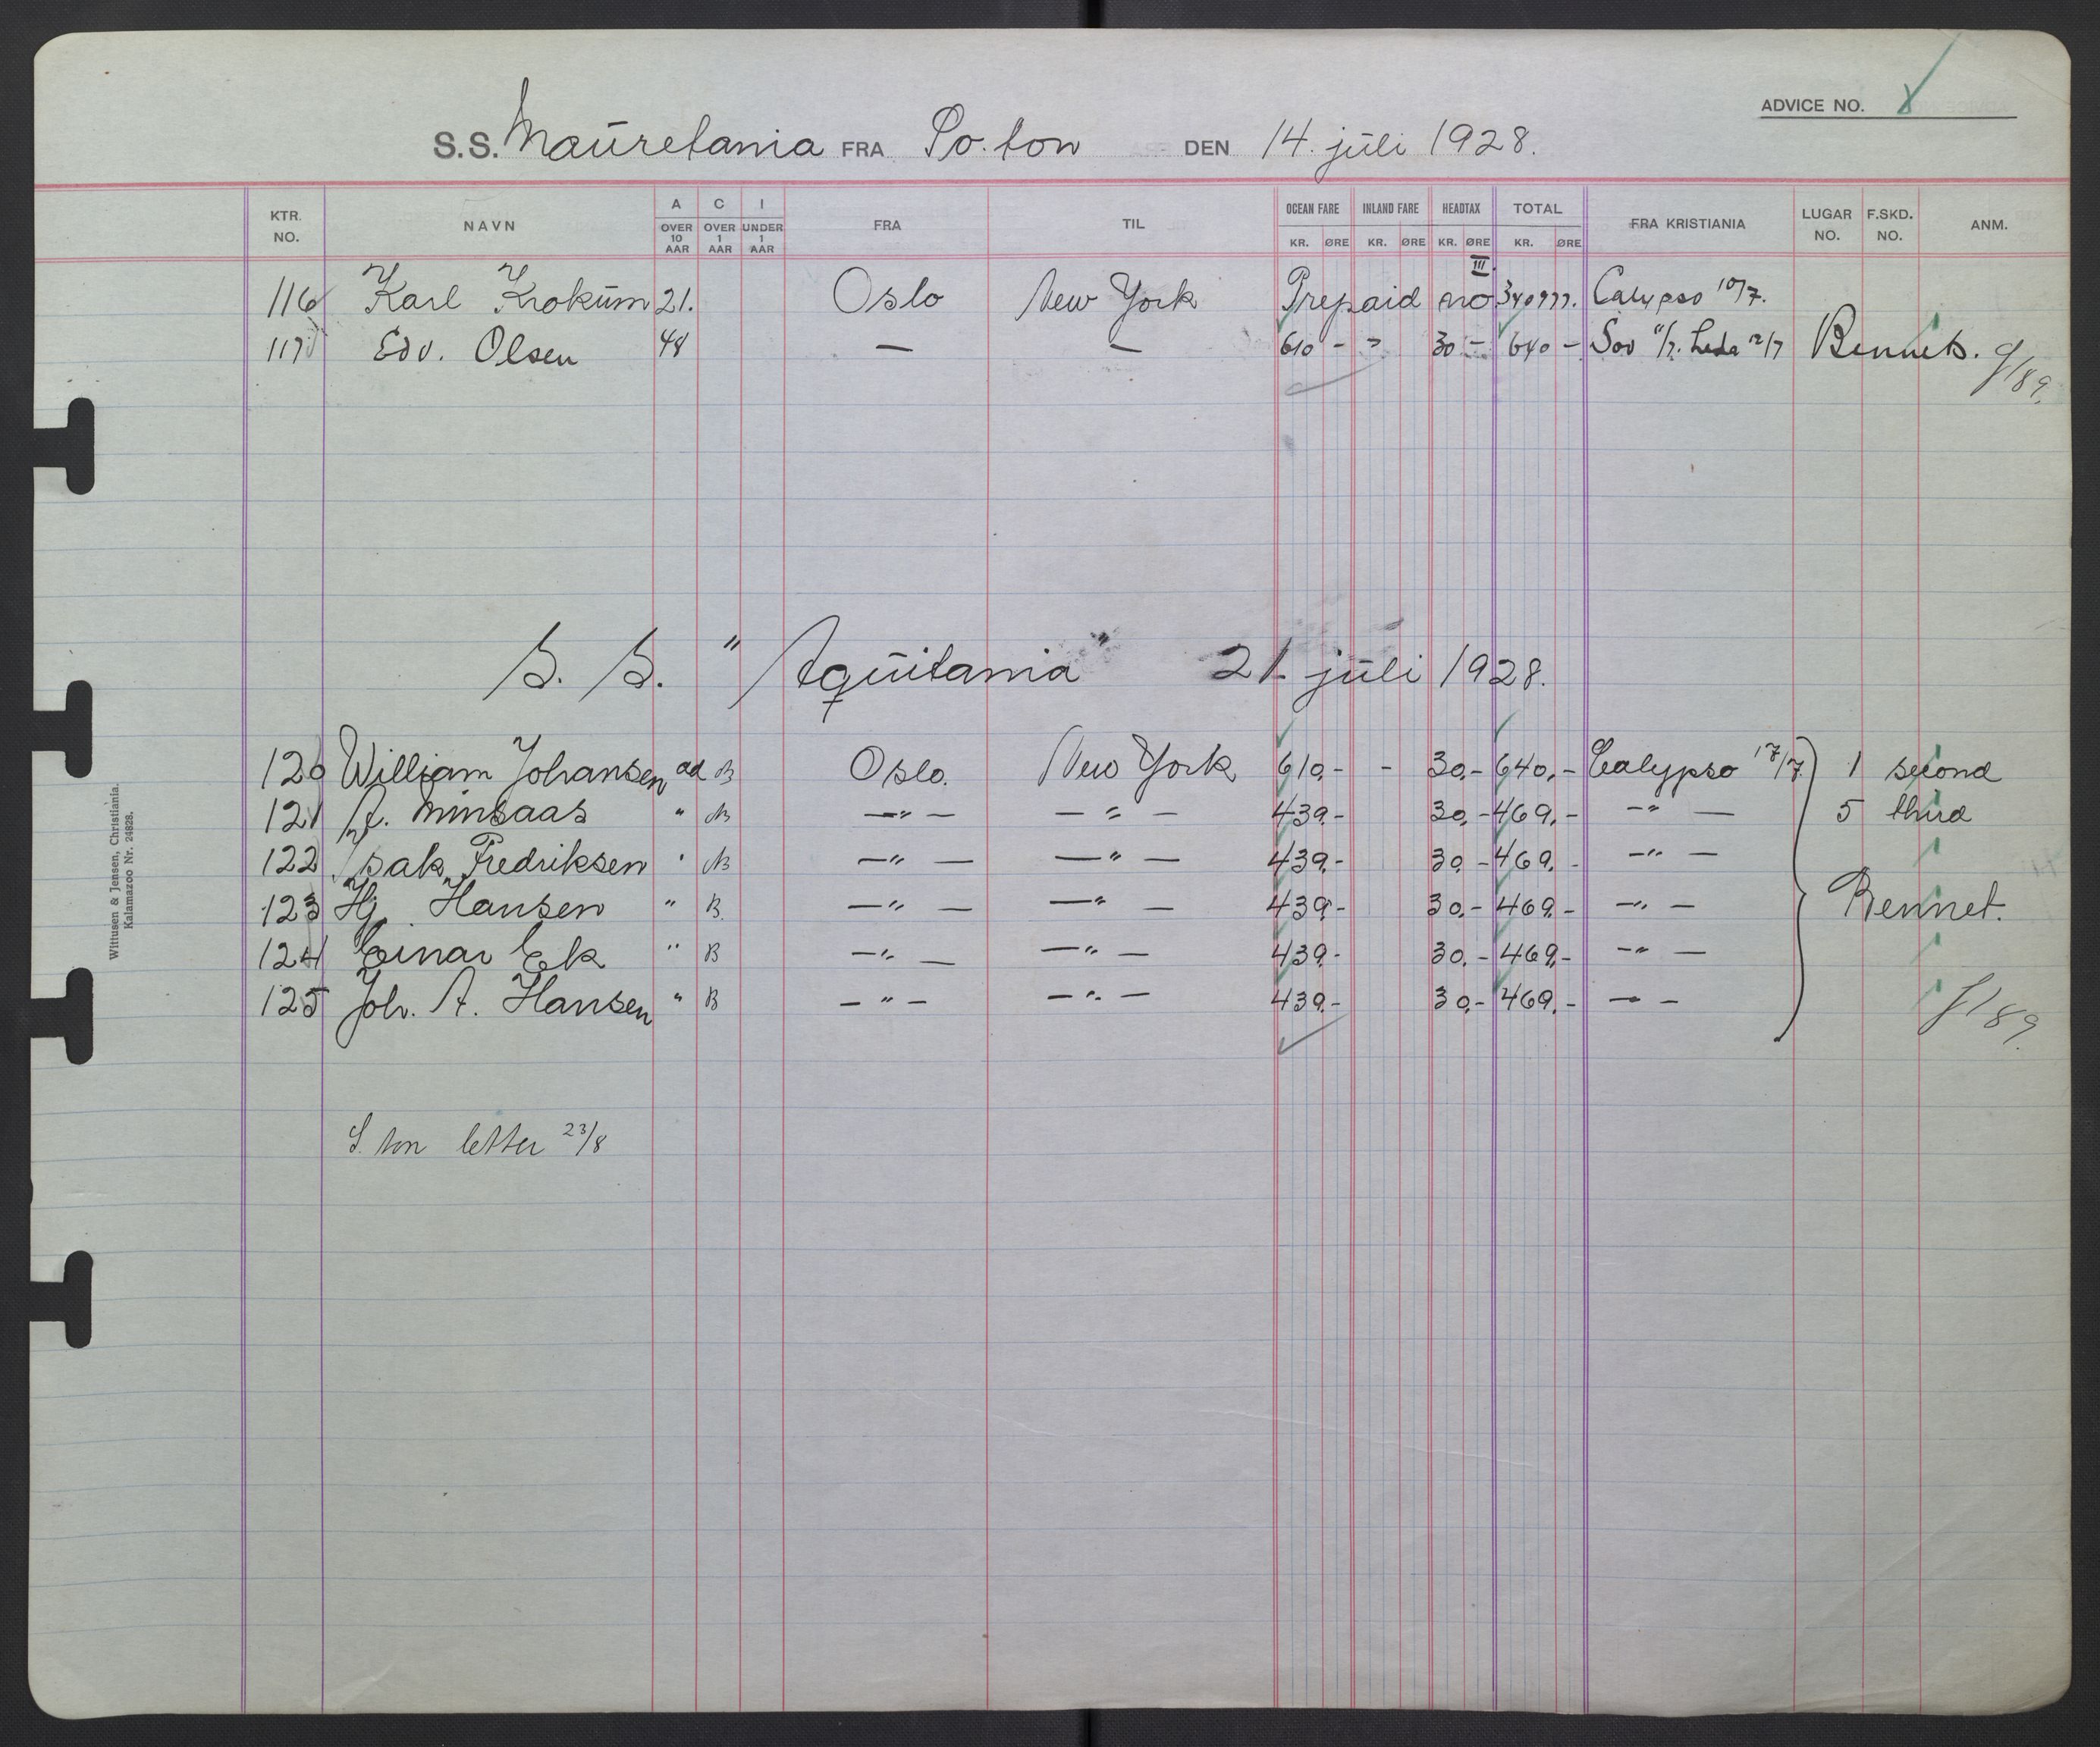 ADVICE NO.
S.S. Mauretania FRA So.ton DEN 14. juli 1928.
KTR. NO. NAVN A OVER 10 AAR C OVER 1 AAR I UNDER 1 AAR FRA TIL OCEAN FARE KR. ØRE INLAND FARE KR. ØRE HEADTAX KR. ØRE TOTAL KR. ØRE FRA KRISTIANIA LUGAR NO. F.SKD. NO. ANM.
III
116 Karl Krokum 21. Oslo New York Prepaid no. Calypso 10/7.
117 Edv. Olsen 48 — — 610 - - 30 - 640 - Leda 12/7 Bennets.
S. S. "Aquitania" 21. juli 1928.
120 William Johansen ad B Oslo. New York 610.- - 30.- 640.- Calypso 17/7 1 second
121 A. Minsaas " B —"— —"— 439.- 30.- 469.- —"— 5 third
122 Isak Fredriksen " B —"— —"— 439.- 30.- 469.- —"—
123 Hj. Hansen " B. —"— —"— 439.- 30.- 469.- —"— Bennet.
124 Einar Ek " B —"— —"— 439.- 30.- 469.- —"—
125 Joh. A. Hansen " B —"— —"— 439.- 30.- 469.- — —
S.ton letter 23/8
Wittusen & Jensen, Christiania.
Kalamazoo Nr. 24828.